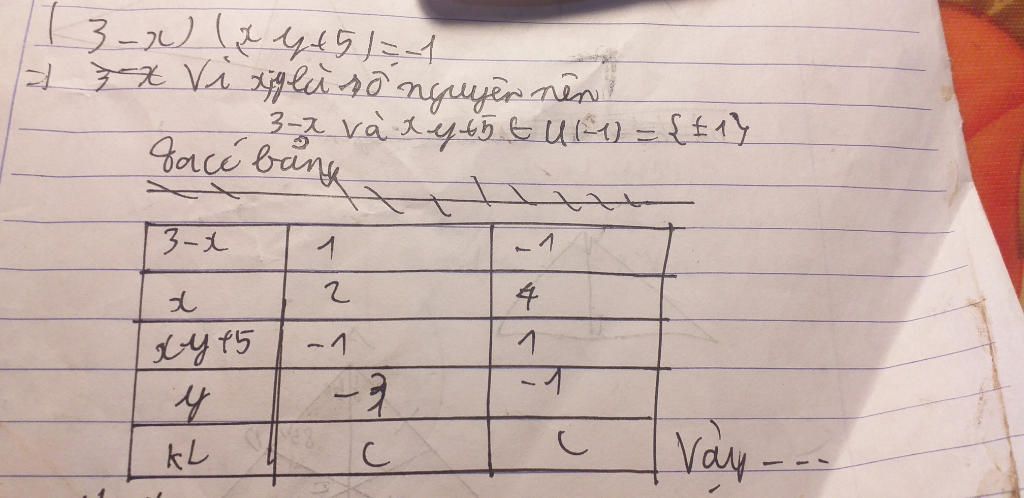 (3-x) (xy+5)=-1
=> Vì x,y là số nguyên nên
3-x và xy+5 ∈ Ư(-1) = {±1}
Ta có bảng
3-x 1 -1
x 2 4
xy+5 -1 1
y -3 -1
KL C C
Vậy ---